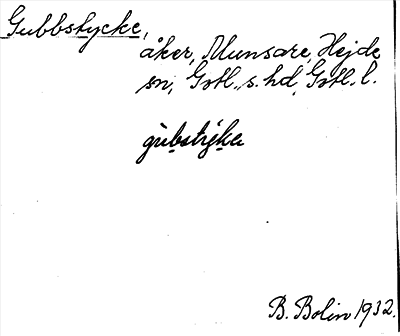 Gubbstycke,
åker, Munsare, Hejde
sn, Gotl. s. hd, Gotl. l.
gùbstyka
B. Bolin 1932.